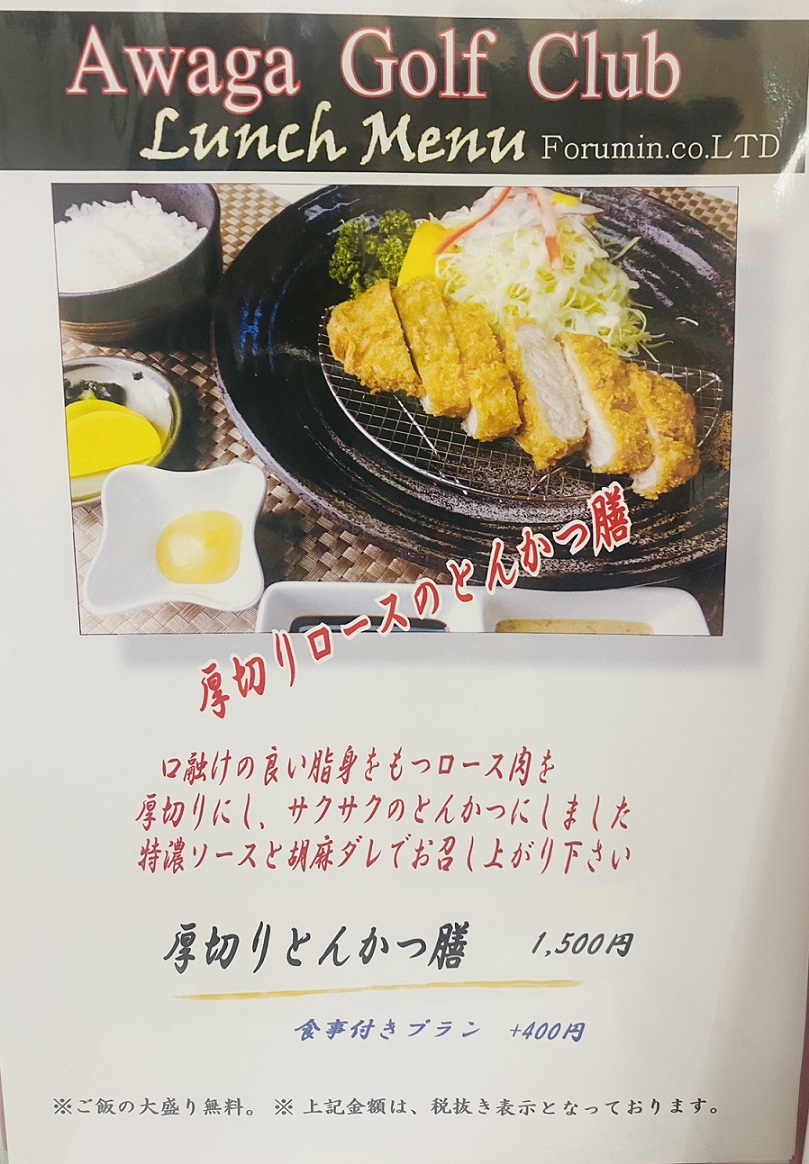 Awaga Golf Club
Lunch Menu Forumin.co.LTD
厚切りロースのとんかつ膳
口融けの良い脂身をもつロース肉を
厚切りにし、サクサクのとんかつにしました
特濃ソースと胡麻ダレでお召し上がり下さい
厚切りとんかつ膳 1,500円
食事付きプラン +400円
※ご飯の大盛り無料。 ※ 上記金額は、税抜き表示となっております。